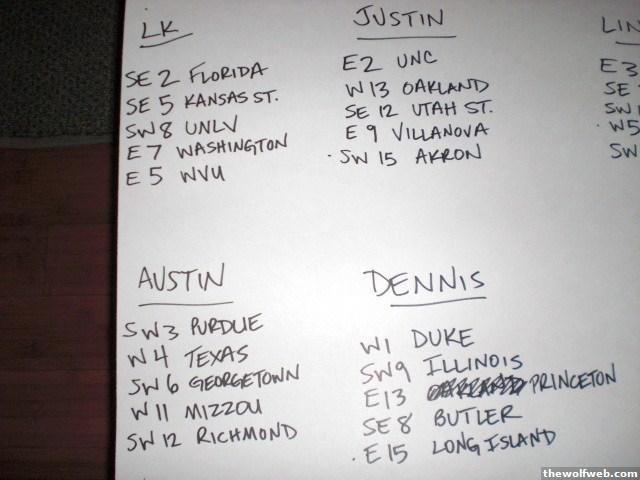 LK
SE 2 FLORIDA
SE 5 KANSAS ST.
SW 8 UNLV
E 7 WASHINGTON
E 5 WVU
JUSTIN
E2 UNC
W 13 OAKLAND
SE 12 UTAH ST.
E 9 VILLANOVA
· SW 15 AKRON
LIN
E3
SE
SW
· W5
SW
AUSTIN
SW3 PURDUE
W 4 TEXAS
SW 6 GEORGETOWN
W 11 MIZZOU
SW 12 RICHMOND
DENNIS
W1 DUKE
SW9 ILLINOIS
E13 PRINCETON
SE 8 BUTLER
· E 15 LONG ISLAND
thewolfweb.com